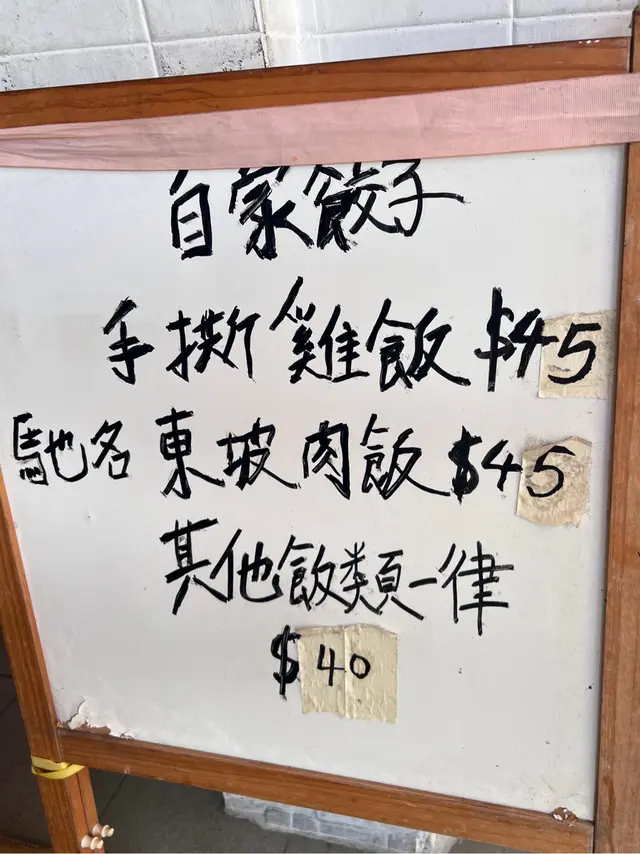 自家餃子
手撕雞飯 $45
馳名東坡肉飯 $45
其他飯類一律
$40